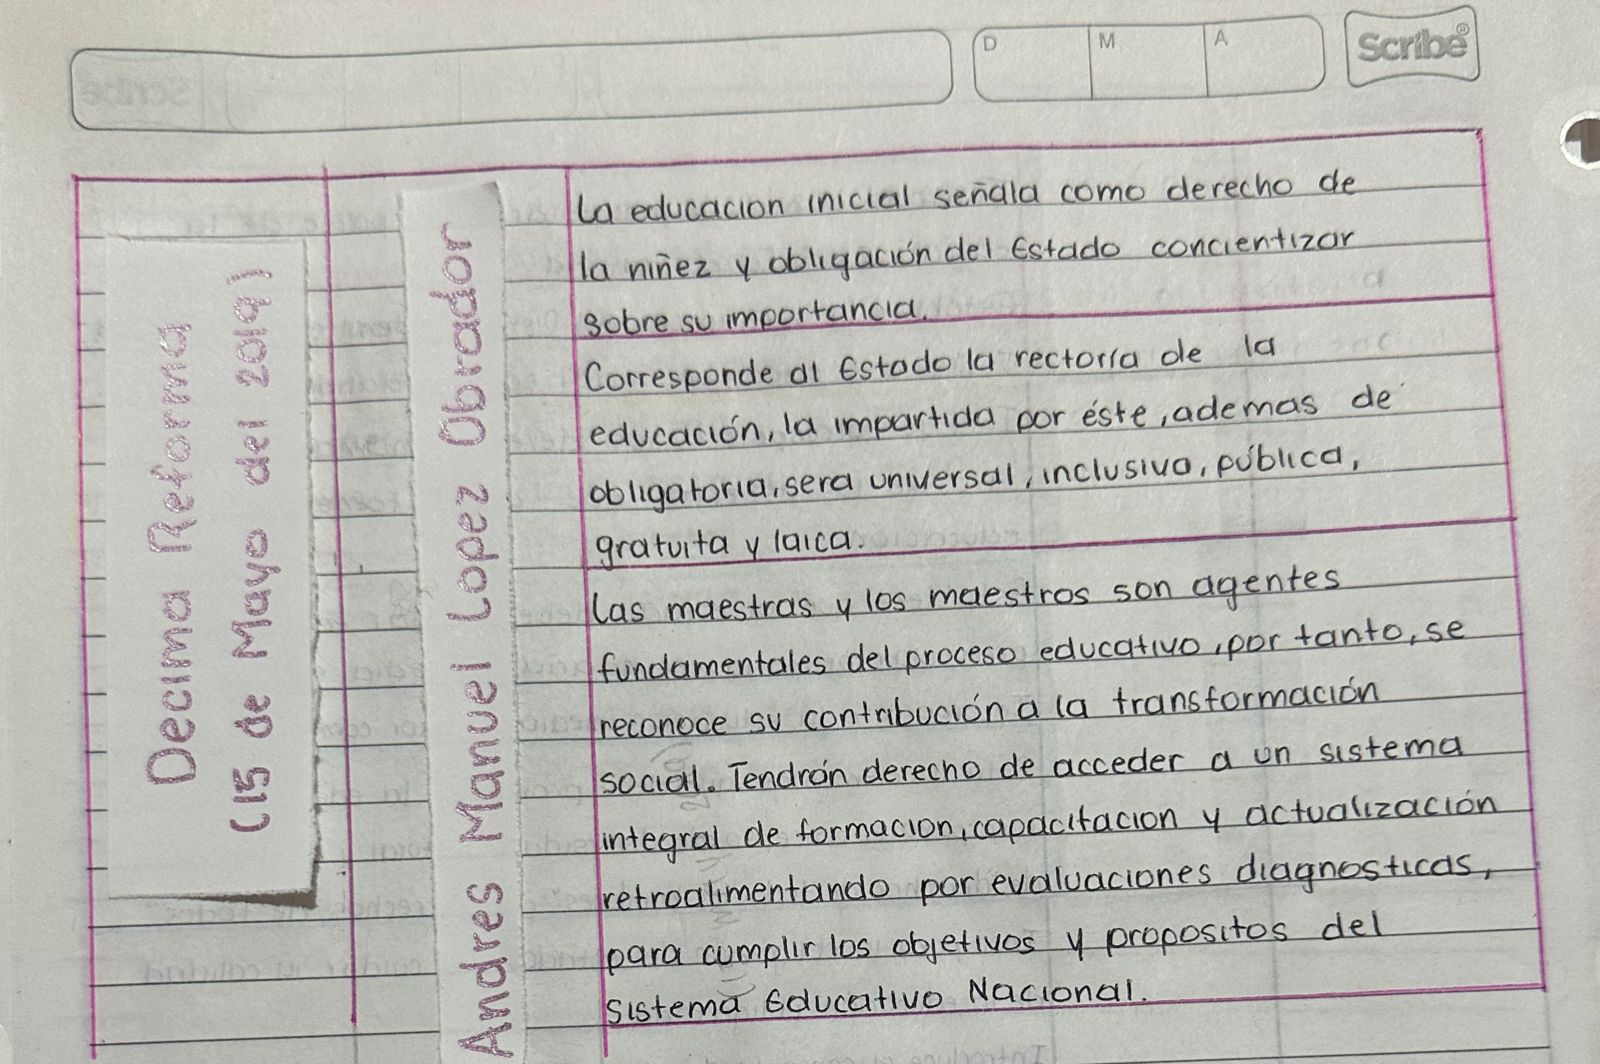 D M A
Scribe®
Decima Reforma
(15 de Mayo del 2019)
Andres Manuel Lopez Obrador
La educacion inicial señala como derecho de
la niñez y obligación del Estado concientizar
sobre su importancia.
Corresponde al Estado la rectoría de la
educación, la impartida por éste, ademas de
obligatoria, sera universal, inclusiva, pública,
gratuita y laica.
Las maestras y los maestros son agentes
fundamentales del proceso educativo, por tanto, se
reconoce su contribución a la transformación
social. Tendrán derecho de acceder a un sistema
integral de formacion, capacitacion y actualización
retroalimentando por evaluaciones diagnosticas,
para cumplir los objetivos y propositos del
Sistema Educativo Nacional.